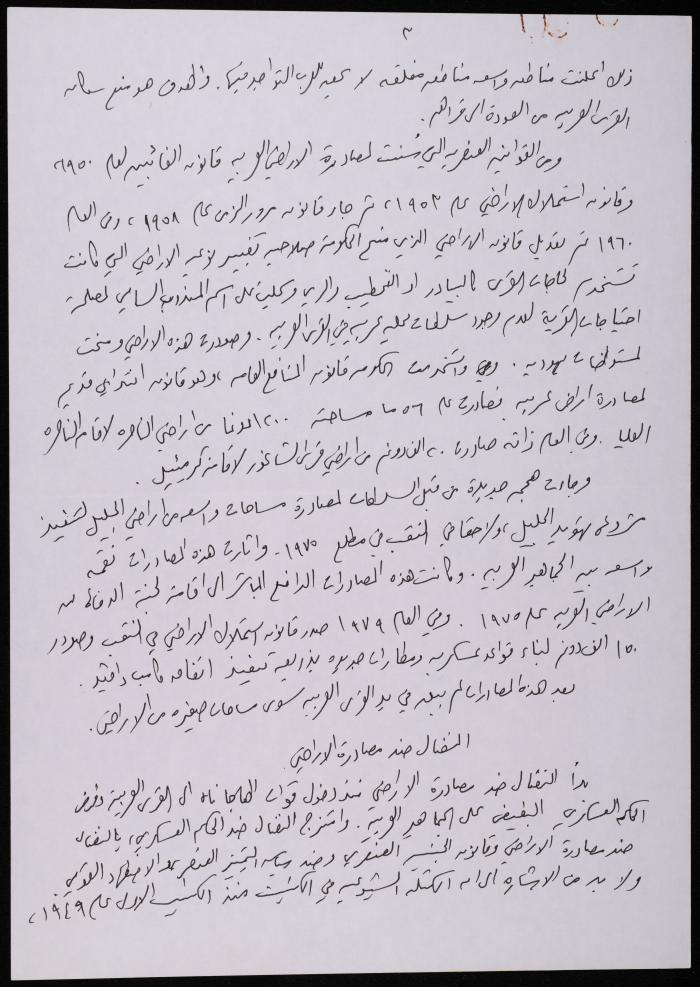 ٣
ذلك اعلنت مناطق واسعه مناطق مغلقه لا يحق للعرب التواجد فيها. والهدف هو منع سكان
القرى العربيه من العودة الى قراهم.
ومن القوانين العنصريه التي سُنت لمصادرة الاراضي العربيه قانون الغائبين لعام ١٩٥٠،
وقانون استملاك الاراضي عام ١٩٥٣، ثم جاء قانون مرور الزمن عام ١٩٥٨، وفي العام
١٩٦٠ تم تعديل قانون الاراضي الذي منح الحكومة صلاحيه تغيير نوعيه الاراضي التي كانت
تستخدم لحاجات القرى كالبيادر او التحطيب والرعي وسجلت على اسم المندوب السامي لمصلحة
احتياجات القرية لعدم وجود سلطات محليه عربيه في القرى العربيه. وصودرت هذه الاراضي ومنحت
لمستوطنات يهوديه. واستخدمت الحكومه قانون المنافع العامه، وهو قانون انتدابي قديم
لمصادرة اراض عربيه فصادرت عام ٥٦ ما مساحته ١٢٠٠ دونما من اراضي الناصره لاقامة الناصره
العليا. وفي العام ذاته صادرت ٢٠ الف دونم من اراضي قرى الشاغور لاقامة كرميئيل.
وجاءت هجمه جديدة من قبل السلطات لمصادرة مساحات واسعه من اراضي الجليل لتنفيذ
مشروع تهويد الجليل، ولاحقا في النقب في مطلع ١٩٧٥. واثارت هذه المصادرات نقمه
واسعه بين الجماهير العربيه. وكانت هذه المصادرات الدافع المباشر الى اقامة لجنة الدفاع عن
الاراضي العربيه عام ١٩٧٥. وفي العام ١٩٧٩ صدر قانون استملاك الاراضي في النقب وصودر
١٥٠ الف دونم لبناء قواعد عسكريه ومطارات جديده بذريعة تنفيذ اتفاقه كامب دافيد.
بعد هذه المصادرات لم يبق في يد القرى العربيه سوى مساحات صغيره من الاراضي.
النضال ضد مصادرة الاراضي
بدأ النضال ضد مصادرة الاراضي منذ دخول قوات الهاجاناه الى القرى العربية وفرض
الحكم العسكري البغيض على الجماهير العربية. وامتزج النضال ضد الحكم العسكري، بالنضال
ضد مصادرة الاراضي وقانون الجنسية العنصري وضد سياسه التمييز العنصري والاضطهاد القومي
ولا بد من الاشاره الى ان الكتله الشيوعيه في الكنيست منذ الكنيست الاولى عام ١٩٤٩،